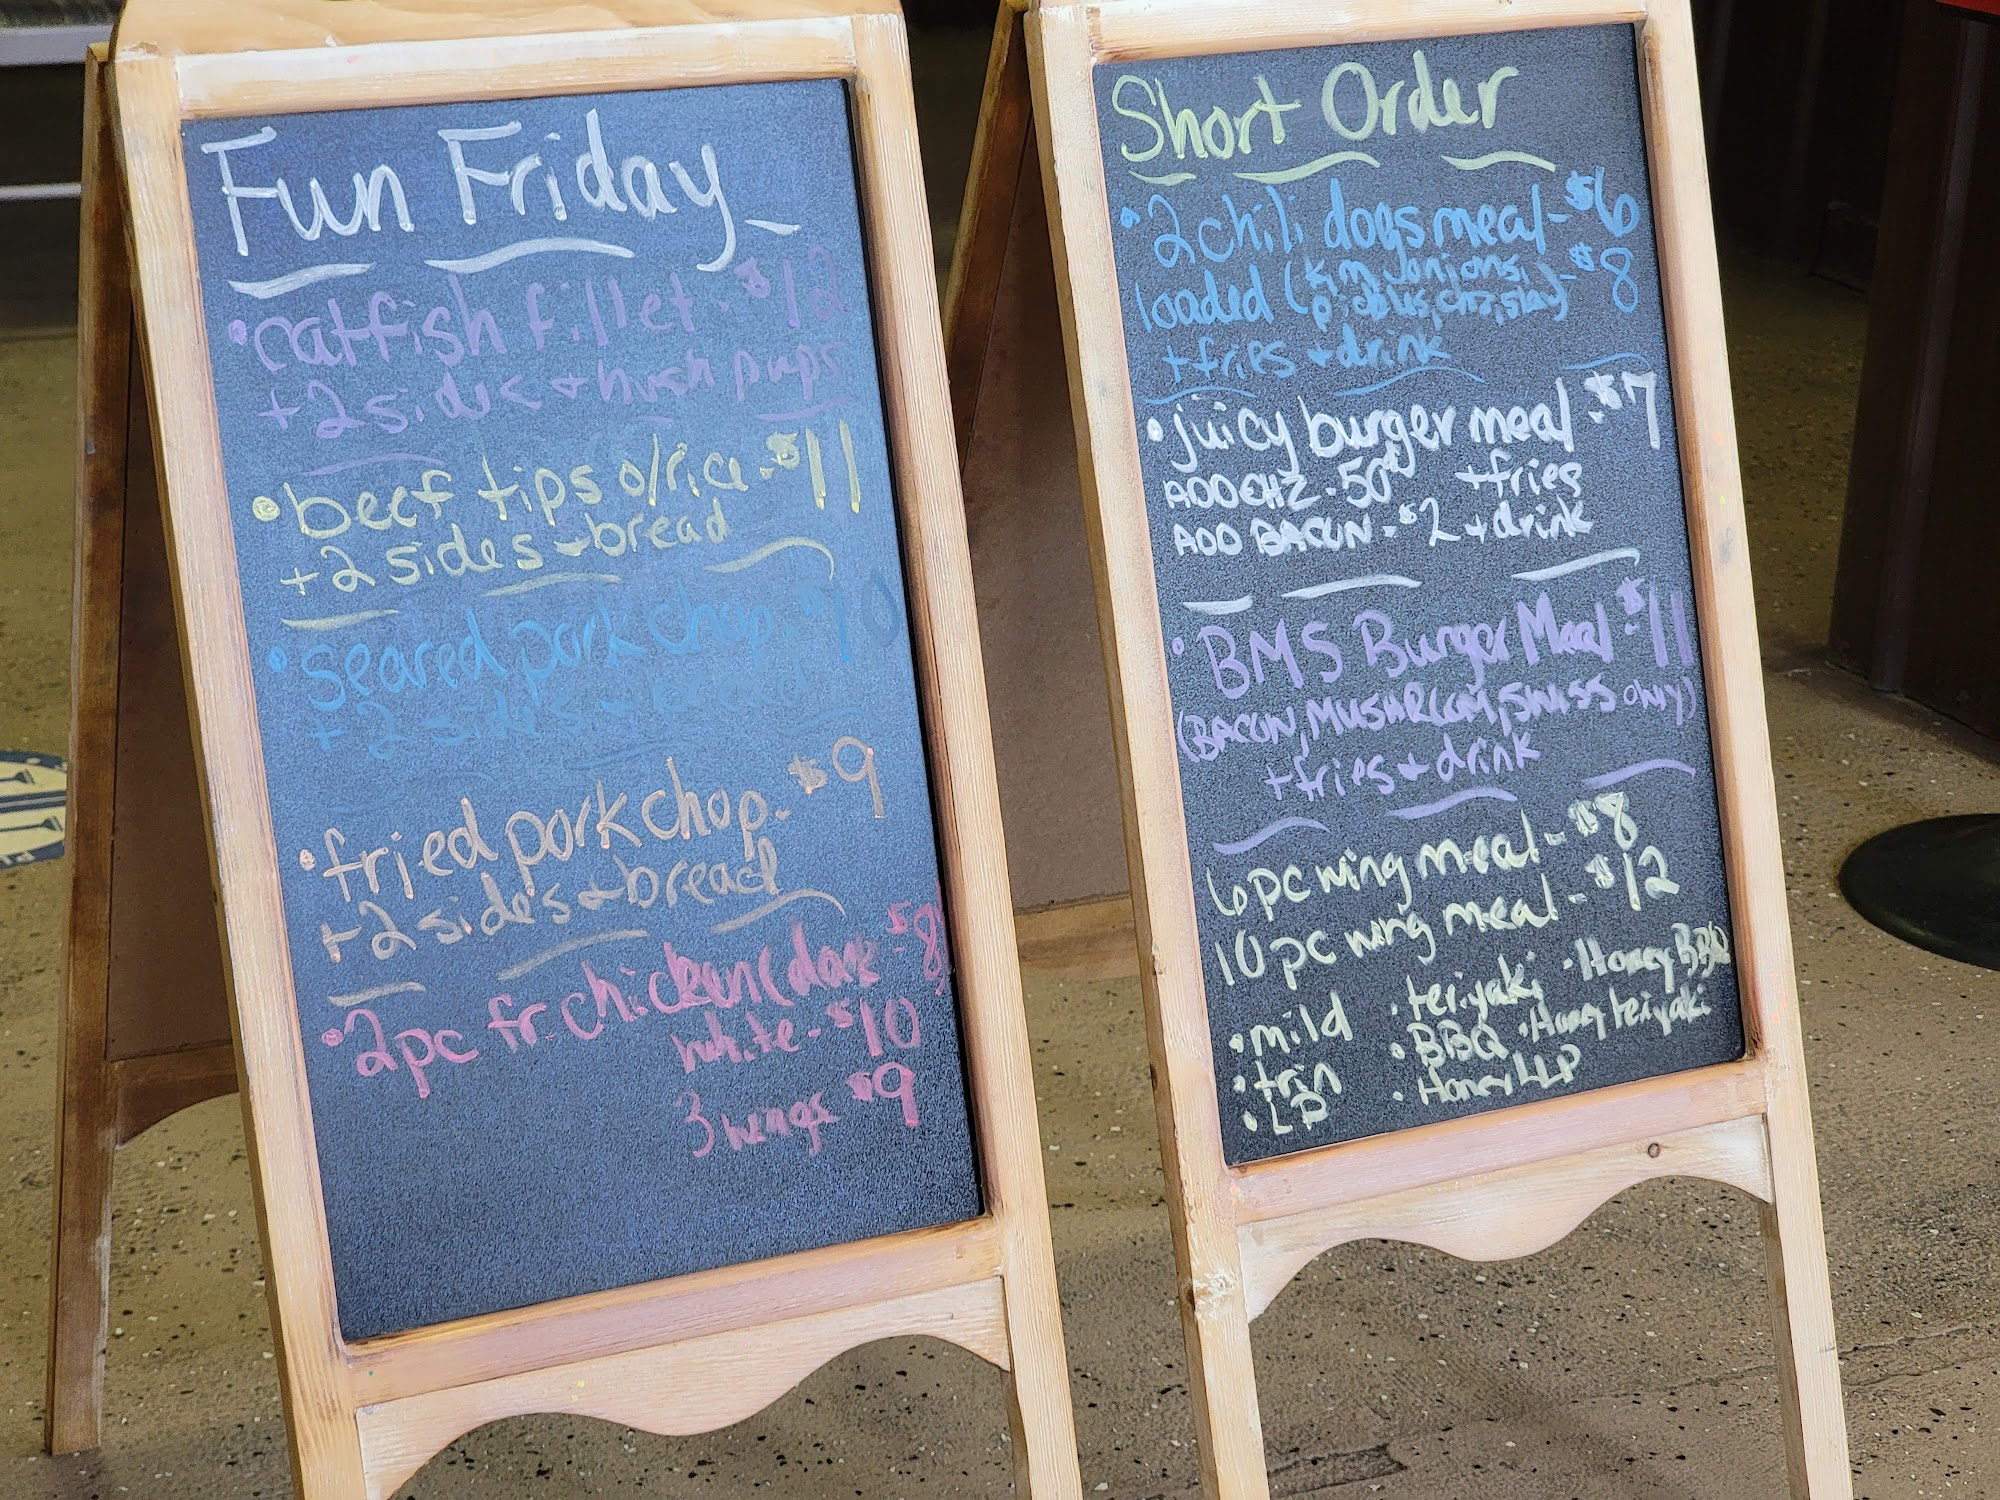 Fun Friday
• catfish fillet - $12
+ 2 sides + hush pups
• beef tips o/rice - $11
+ 2 sides + bread
• seared pork chop - $10
+ 2 sides + bread
• fried pork chop - $9
+ 2 sides + bread
• 2 pc fr. chicken (dark - $8
white - $10
3 wings $9
Short Order
• 2 chili dogs meal - $6
loaded (k, m, onions, - $8
pickles, chz, slaw)
+ fries + drink
• juicy burger meal - $7
ADD CHZ - 50¢ + fries
ADD BACON - $2 + drink
• BMS Burger Meal - $11
(BACON, MUSHROOM, SWISS ONLY)
+ fries + drink
6 pc wing meal - $8
10 pc wing meal - $12
• mild • teriyaki • Honey BBQ
• BBQ • Honey teriyaki
• LP • Honey LP